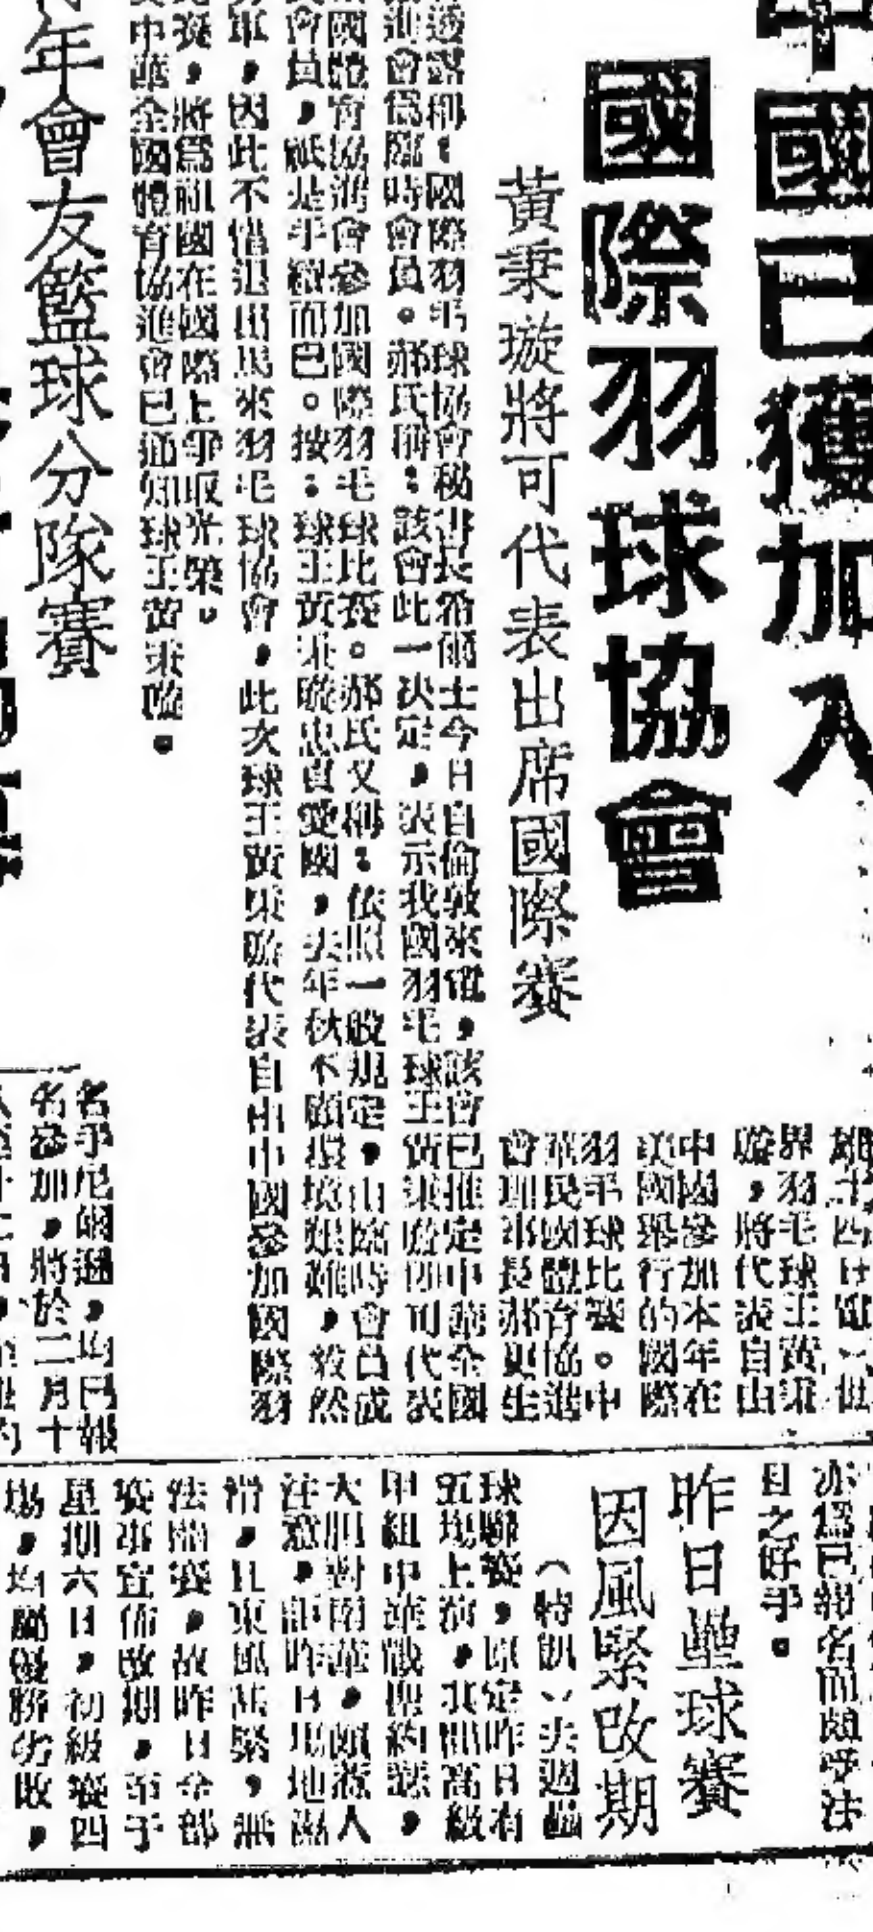 中國已獲加入
國際羽球協會
黃秉璇將可代表出席國際賽
界羽毛球王黃秉
璇,將代表自由
中國參加本年在
美國舉行的國際
羽毛球比賽。中
華民國體育協進
會理事長郝更生
透露稱:國際羽毛球協會秘書長希爾士今日自倫敦來電,該會已推定中華全國
進會爲臨時會員。郝氏稱:該會此一決定,表示我國羽毛球王黃秉璇即可代表
國體育協進會參加國際羽毛球比賽。郝氏又稱:依照一般規定,由臨時會員成
會員,祇是手續而已。按:球王黃秉璇忠貞愛國,去年秋不顧環境艱難,毅然
軍,因此不惜退出馬來羽毛球協會,此次球王黃秉璇代表自由中國參加國際羽
賽,將爲祖國在國際上爭取光榮。
中華全國體育協進會已通知球王黃秉璇。
年會友籃球分隊賽
名手尼爾遜,均已報
名參加,將於二月十
亦爲已報名而頗受注
目之好手。
昨日壘球賽
因風緊改期
(特訊)去週壘
球聯賽,原定昨日有
五場上演,其中高級
甲組中華戰聖約瑟,
大胆對南華,頗惹人
注意,詎昨日場地濕
滑,且東風甚緊,無
法開賽,故昨日全部
賽事宣佈改期,至于
星期六日,初級賽四
場,均屬優勝劣敗,